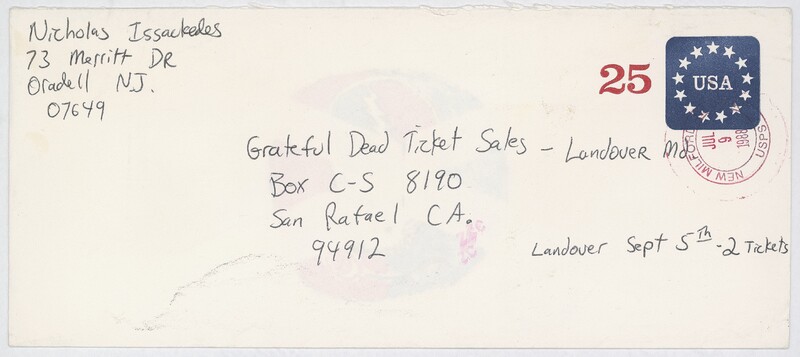 Nicholas Issackedes
73 Merritt DR
Oradell N.J.
07649
25
USA
Grateful Dead Ticket Sales - Landover Md
Box C-S 8190
San Rafael CA.
94912
NEW MILFORD
JUL
6
1988
USPS
Landover Sept 5Th - 2 Tickets